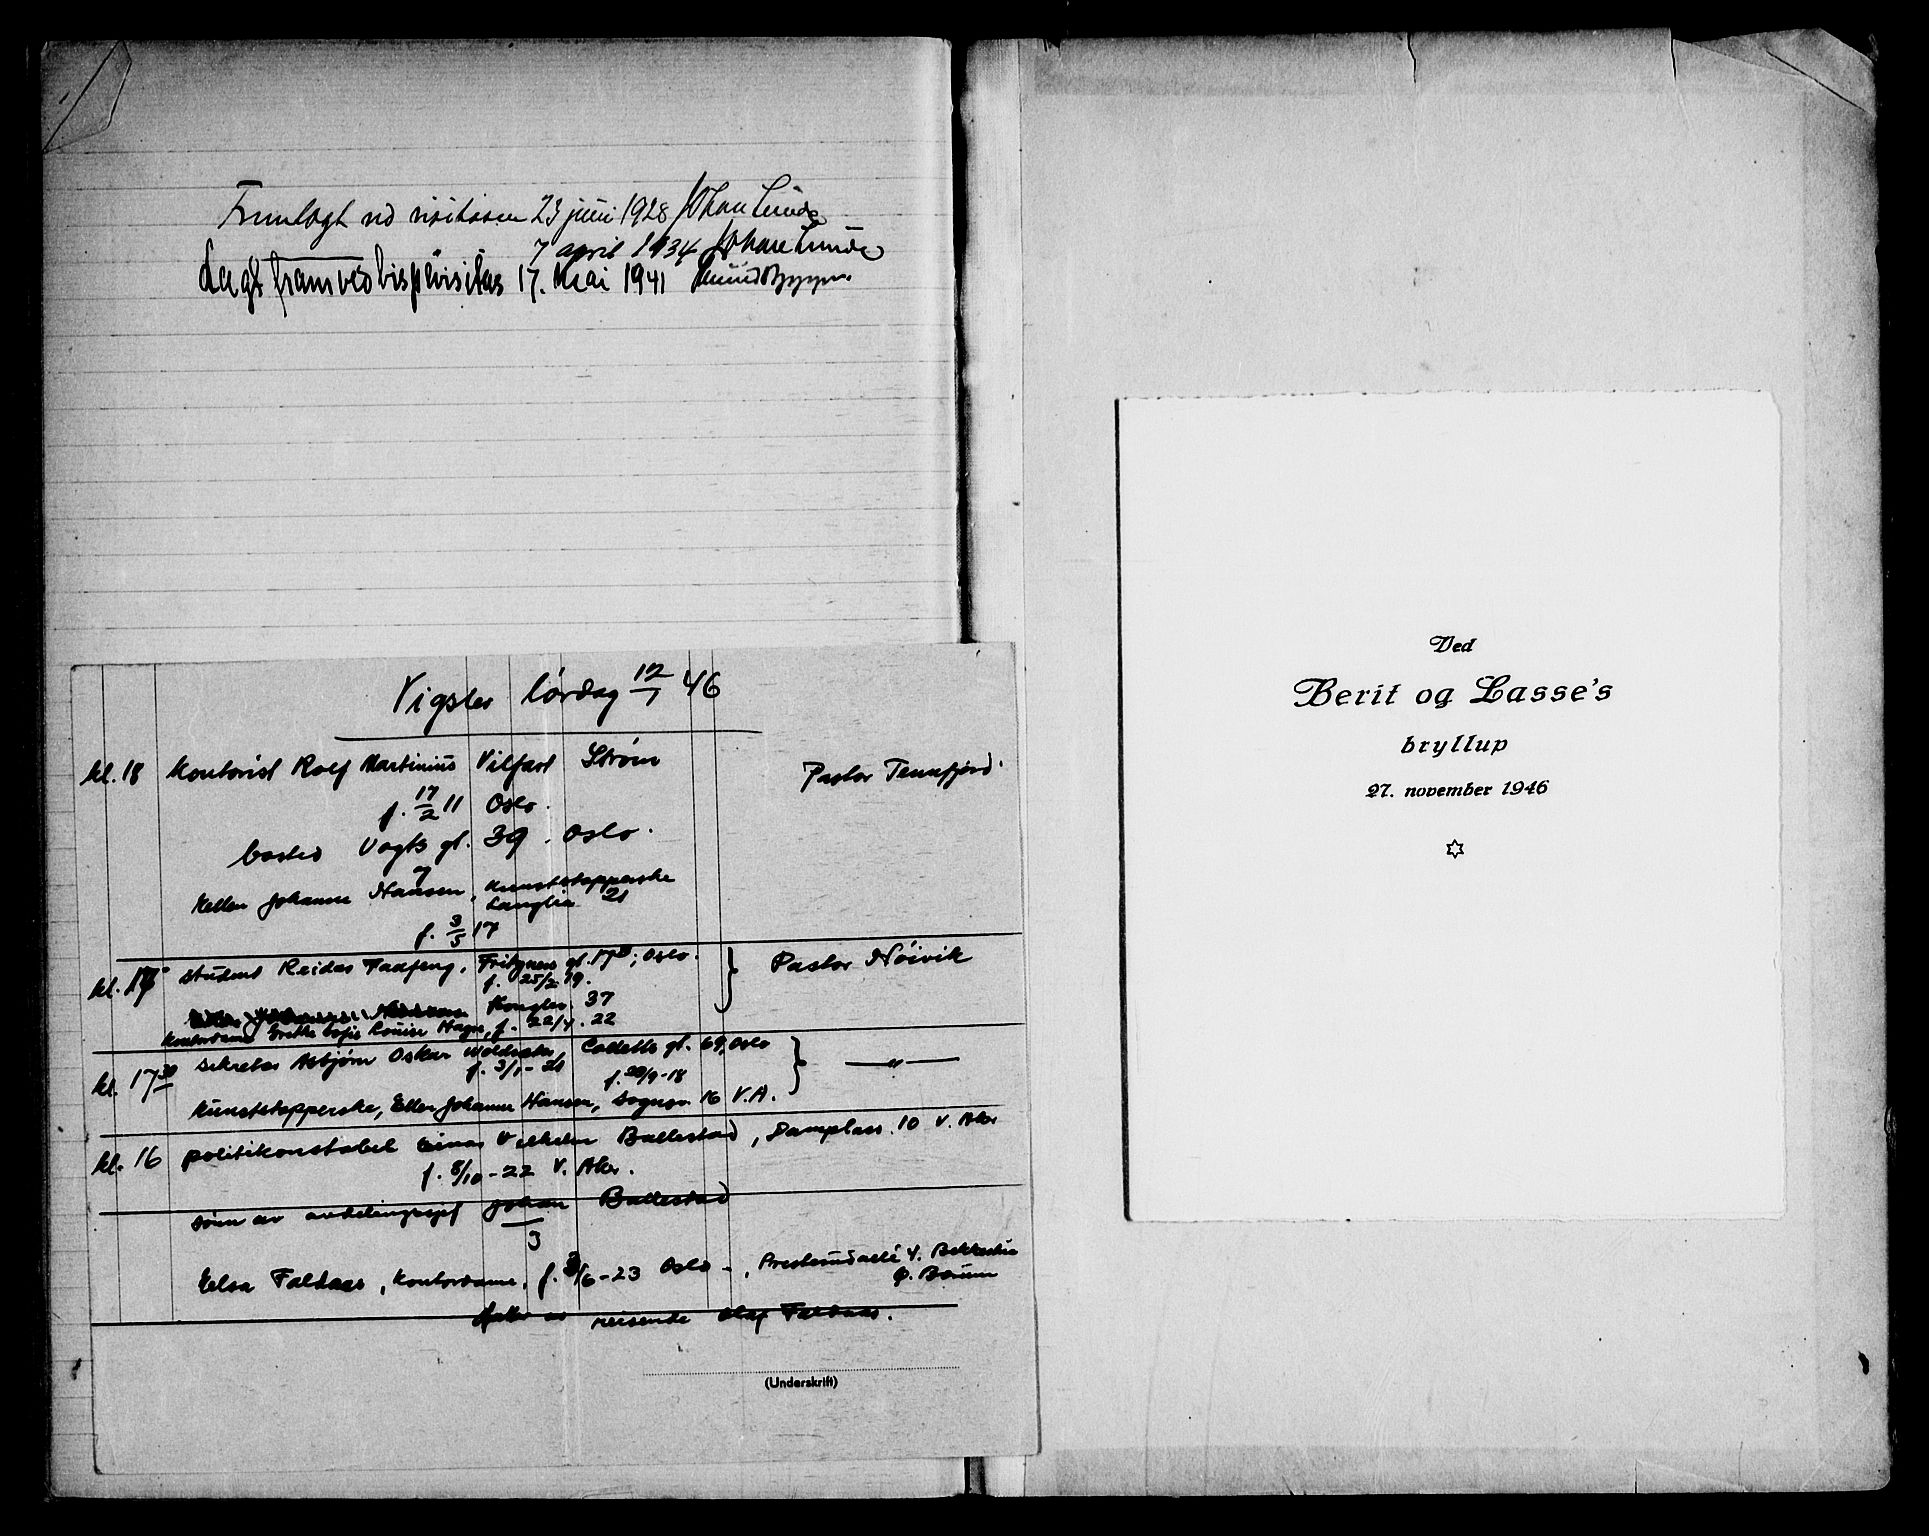 Fremlagt ved visitasen 23 juni 1928 Johan Lunde
7 april 1934 Johan Lunde
Lagt fram ved bispevisitas 17. Mai 1941
Vigsler lørdag 12/1 46
kl. 18 Kontorist Rolf Martinius Vilfart Strøm Pastor Tennfjord
f. 17/2 11 Oslo.
bosted Vogts gt. 39. Oslo.
Ellen Johanne Hansen, kunststopperske
Langlia 21
f. 3/5 17
kl. student Reidar Taafeng, Fritzners gt. Oslo. Pastor Nöivik
f. 25/2 19.
Kongsv. 37
Kontordame Grethe Sofie Louise Hagne, f. 22/4. 22
kl. 17 30 sekretær Asbjørn Oskar Colletts gt. 69, Oslo — " —
f. 3/1 - 21 f. 20/9-18
kunststopperske, Ellen Johanne Hansen, Sognsv. 16 V.A.
kl. 16 politikonstabel Einar Vilhelm Ballestad, Damplass. 10 V. Aker
f. 8/10 - 22 V. Aker.
sönn av avdelingssjef Johan Ballestad
Elsa Faldaas, kontordame, f. 3/6 - 23 Oslo -, 4. Bekkestua
Ø. Bærum
datter av reisende Olaf Faldaas.
(Underskrift)
Ved
Berit og Lasse's
bryllup
27. november 1946